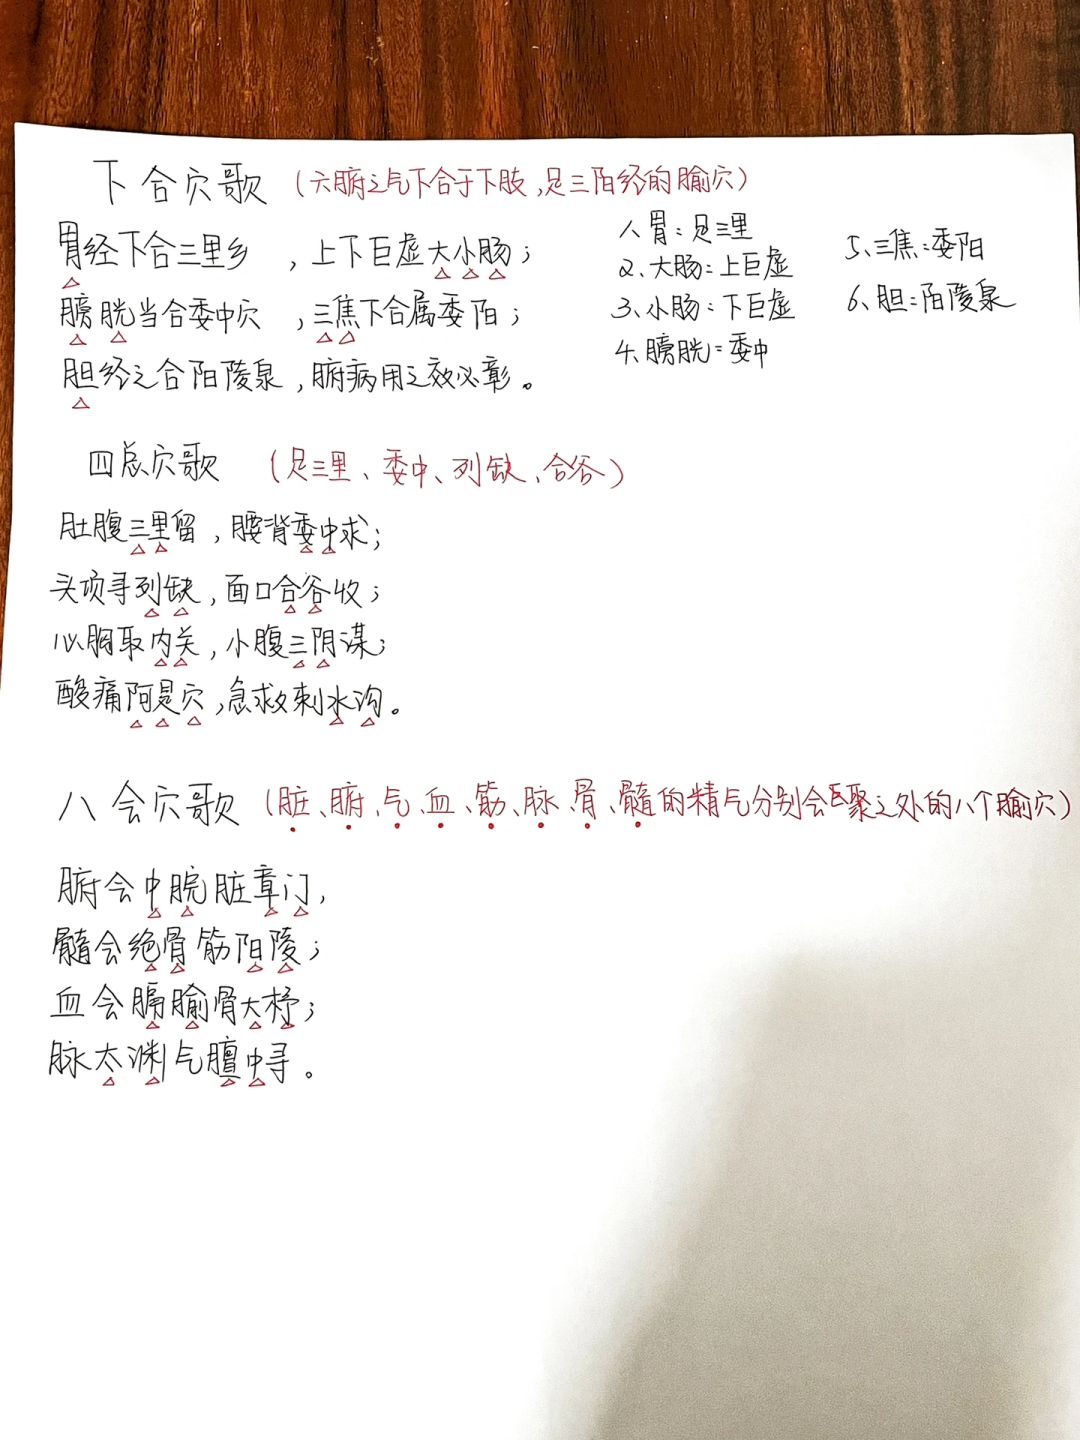 下合穴歌（六腑之气下合于下肢,足三阳经的腧穴）
胃经下合三里乡，上下巨虚大小肠；
膀胱当合委中穴，三焦下合属委阳；
胆经之合阳陵泉，腑病用之效必彰。
1、胃：足三里
2、大肠：上巨虚
3、小肠：下巨虚
4、膀胱：委中
5、三焦：委阳
6、胆：阳陵泉
四总穴歌（足三里、委中、列缺、合谷）
肚腹三里留，腰背委中求；
头项寻列缺，面口合谷收；
心胸取内关，小腹三阴谋；
酸痛阿是穴，急救刺水沟。
八会穴歌（脏、腑、气、血、筋、脉、骨、髓的精气分别会聚之处的八个腧穴）
腑会中脘脏章门，
髓会绝骨筋阳陵；
血会膈腧骨大杼；
脉太渊气膻中寻。